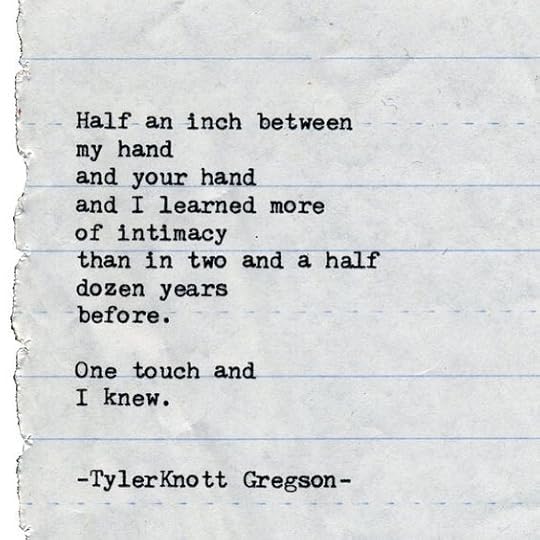 Half an inch between
my hand
and your hand
and I learned more
of intimacy
than in two and a half
dozen years
before.
One touch and
I knew.
-TylerKnott Gregson-